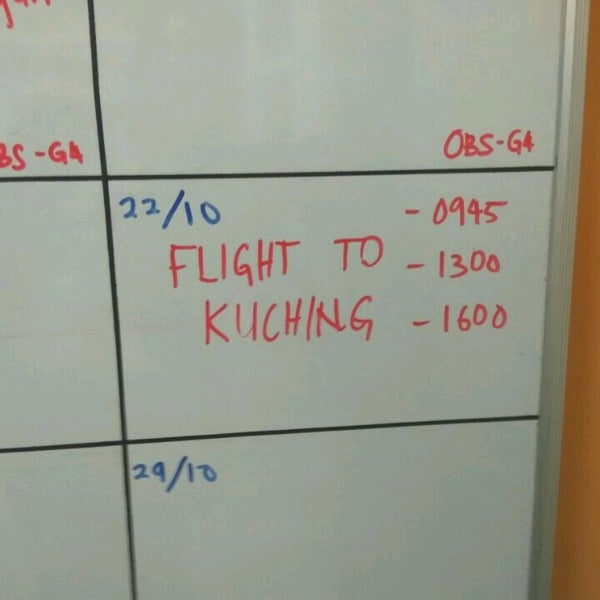 BS-G4
OBS-G4
22/10
- 0945
FLIGHT TO - 1300
KUCHING - 1600
29/10